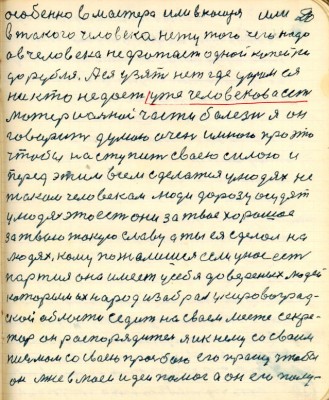 особенно в мастера или в кащея или
в такого человека нету того чего надо
а в человека не дротает одной копейки
до рубля. А ся узят негде
никто не дает уже человекова ест
мотериалной части болезн я он
говорит думаю очен много про это
чтобы наступит своею силою и
перед этим всем сделатся у людях не
такою человекам люди дорозу осудят
у людях это ест они за твое хорошое
за твою такую славу а ты ся сделал на
людях, кому пожалишся сем у нас ест
партия она имеет у себя доверених людей
которых их народ избрал у кировоград-
ской области седит на своем месте секре-
тар он распорядится я их нему со своим
писмом со своею прозбою его прошу чтобы
он мне в моей идеи помог а он его полу-